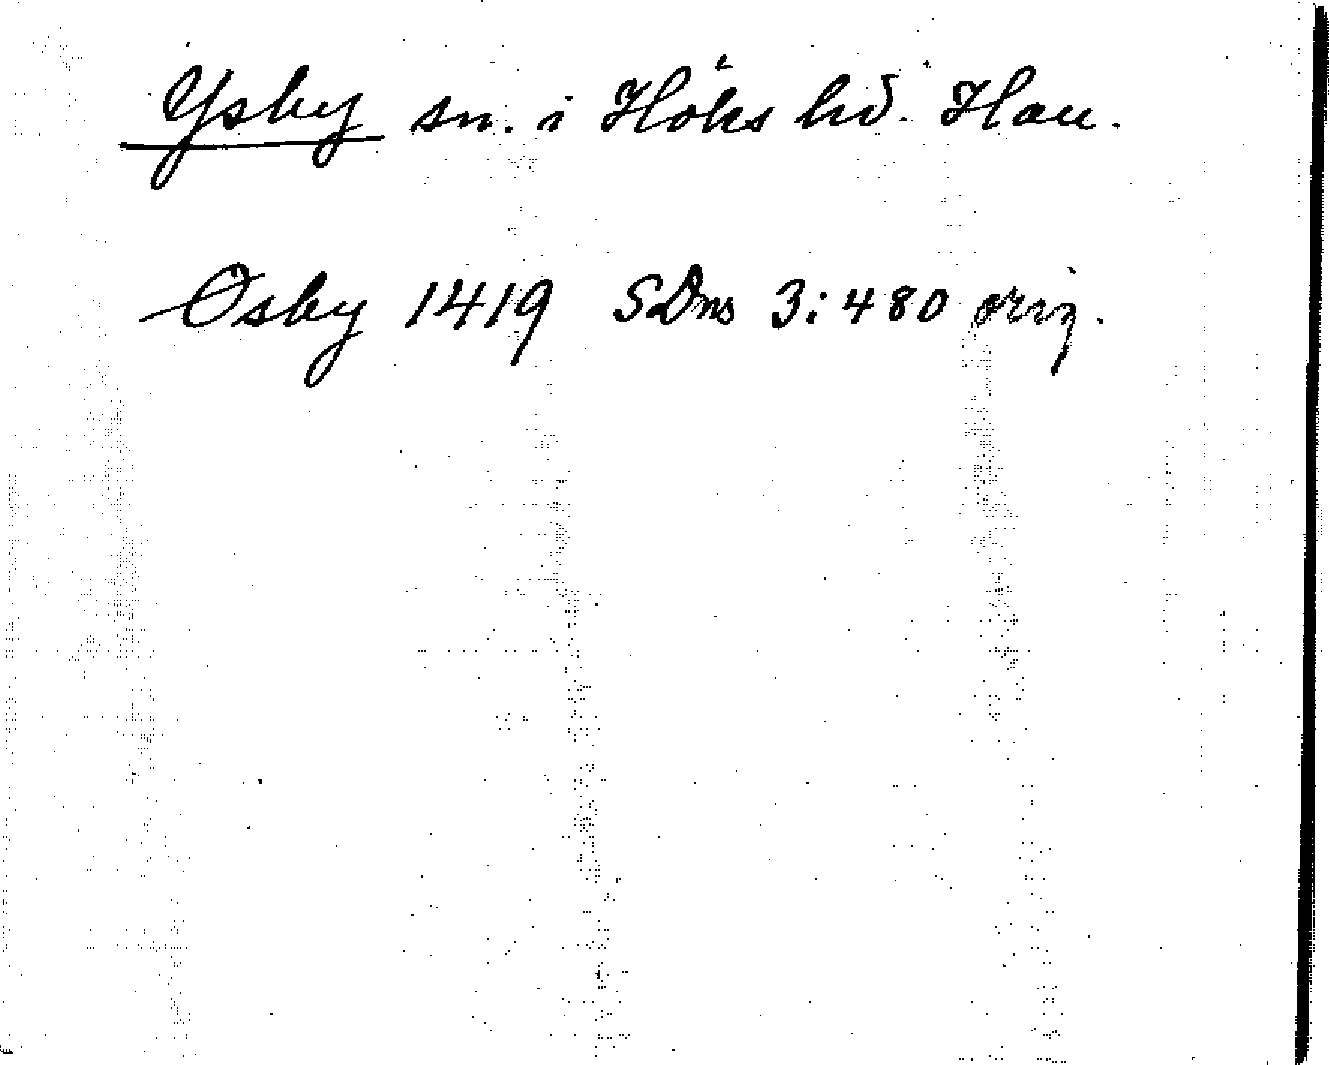 Ysby sn. i Höks hd. Hall.
Øsby 1419 SDns 3:480 orig.